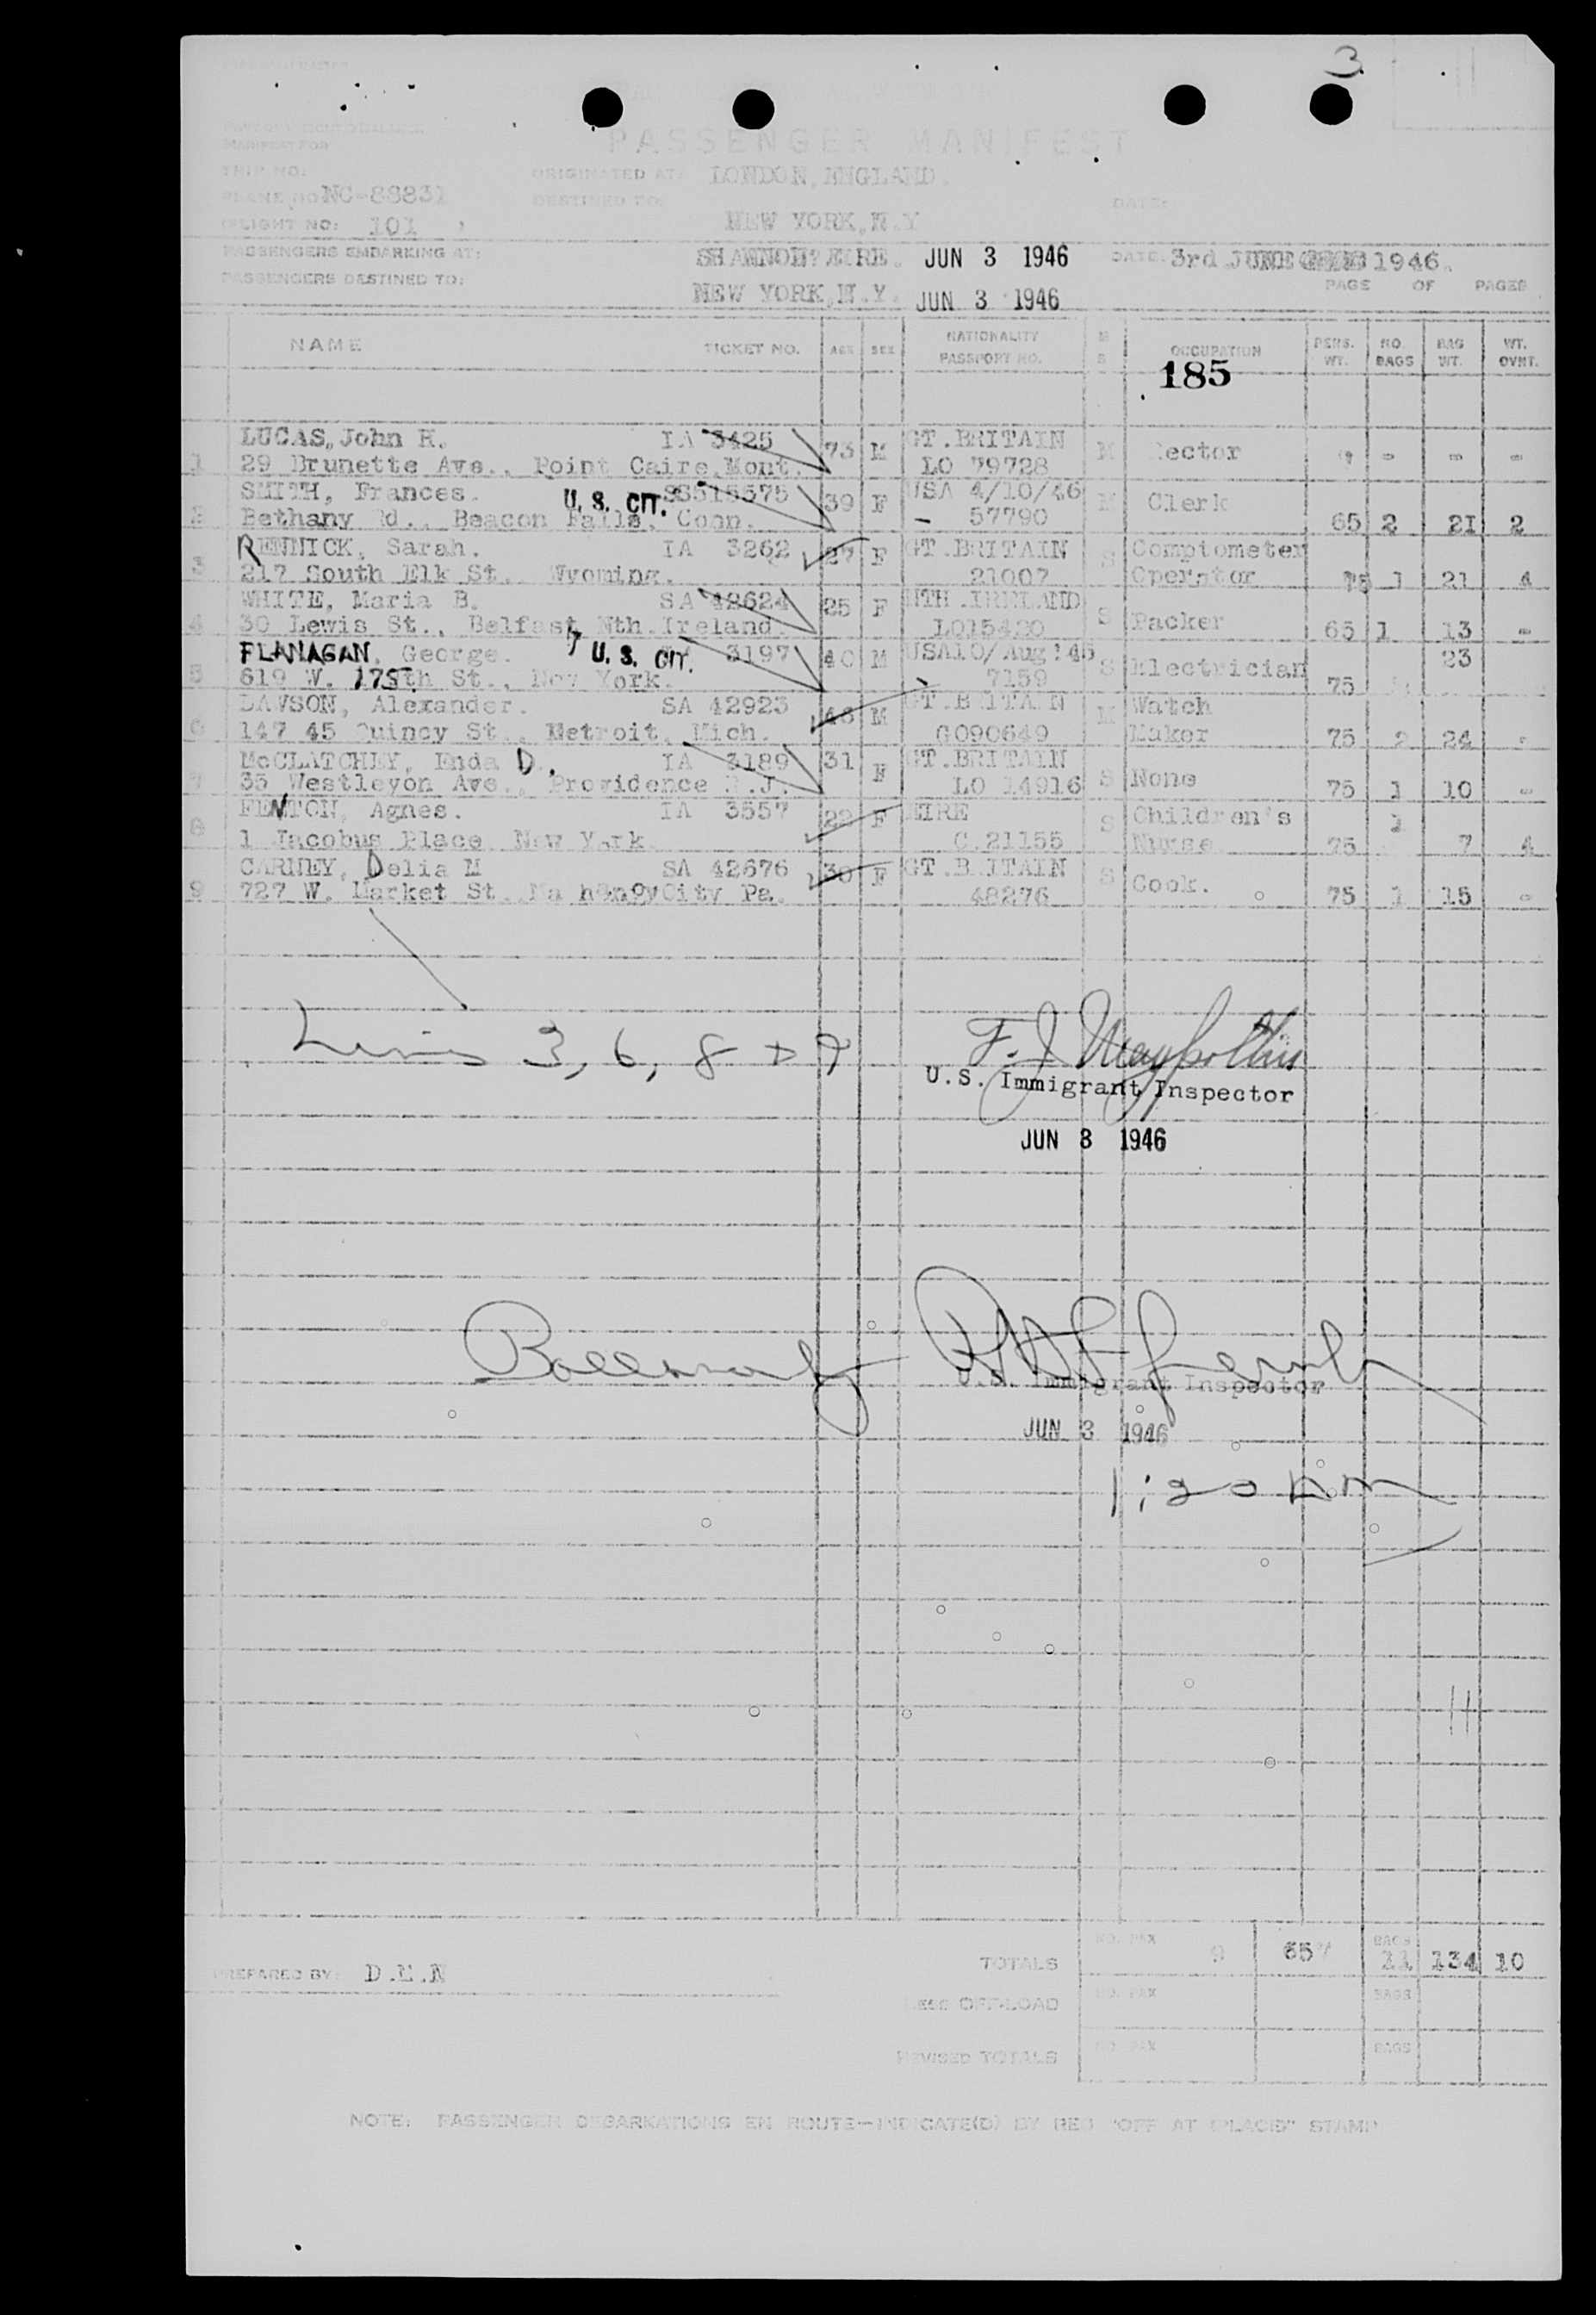 3
PASSENGER MANIFEST
MANIFEST FOR
TRIP NO:
ORIGINATED AT: LONDON, ENGLAND.
PLANE NO: NC-88831
DESTINED TO:
DATE:
NEW YORK, N.Y
FLIGHT NO: 101
PASSENGERS EMBARKING AT: SHANNON EIRE. JUN 3 1946 DATE: 3rd JUNE 1946.
PASSENGERS DESTINED TO: NEW YORK, N.Y. JUN 3 1946
PAGE OF PAGES
NAME TICKET NO. AGE SEX NATIONALITY PASSPORT NO. M S OCCUPATION PERS. WT. NO. BAGS BAG WT. WT. OVHT.
185
LUCAS, John R. IA 3425 73 M GT.BRITAIN M Rector - - -
1 29 Brunette Ave., Point Caire, Mont. LO 79728
SMITH, Frances. U. S. CIT. SS515575 39 F USA 4/10/46 M Clerk
2 Bethany Rd., Beacon Falls, Conn. 57790 65 2 21 2
RENNICK, Sarah. IA 3262 27 F GT.BRITAIN S Comptometer
3 217 South Elk St. Wyoming. 21007 Operator 75 1 21 4
WHITE, Maria B. SA 42624 25 F NTH.IRELAND S Packer
4 30 Lewis St., Belfast, Nth.Ireland. LO15420 65 1 13 -
FLANAGAN, George. U. S. CIT. 3197 40 M USA10/Aug'45 S Electrician 23
5 619 W. 175th St., New York. 7159 75
DAVSON, Alexander. SA 42923 48 M GT.BRITAIN M Watch
6 147 45 Quincy St., Detroit, Mich. G090649 Maker 75 2 24 -
McCLATCHEY, Enda D., IA 3189 31 F GT.BRITAIN
7 35 Westleyon Ave., Providence R.J. LO 14916 S None 75 1 10 -
FENTON, Agnes. IA 3557 22 F EIRE S Children's 1
8 1 Jacobus Place New York C.21155 Nurse 75 7 4
CARNEY, Delia M SA 42676 30 F GT.BRITAIN S Cook.
9 727 W. Market St. Mahanoy City Pa. 48276 75 1 15 -
Lines 3, 6, 8 + 9
U.S. Immigrant Inspector
JUN 3 1946
U.S. Immigrant Inspector
JUN 3 1946
1:20 AM
11
TOTALS NO. PAX 9 657 BAGS 11 134 10
PREPARED BY: D.E.N
LESS OFF-LOAD NO. PAX BAGS
REVISED TOTALS NO. PAX BAGS
NOTE: PASSENGER DEBARKATIONS EN ROUTE—INDICATE(D) BY RED "OFF AT (PLACE)" STAMP